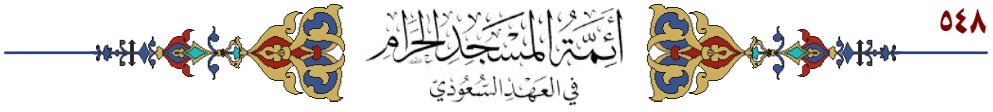 ٥٤٨
أَئِمَّةُ المَسْجِدِ الحَرَامِ
في العَهْدِ السُّعُودِيّ